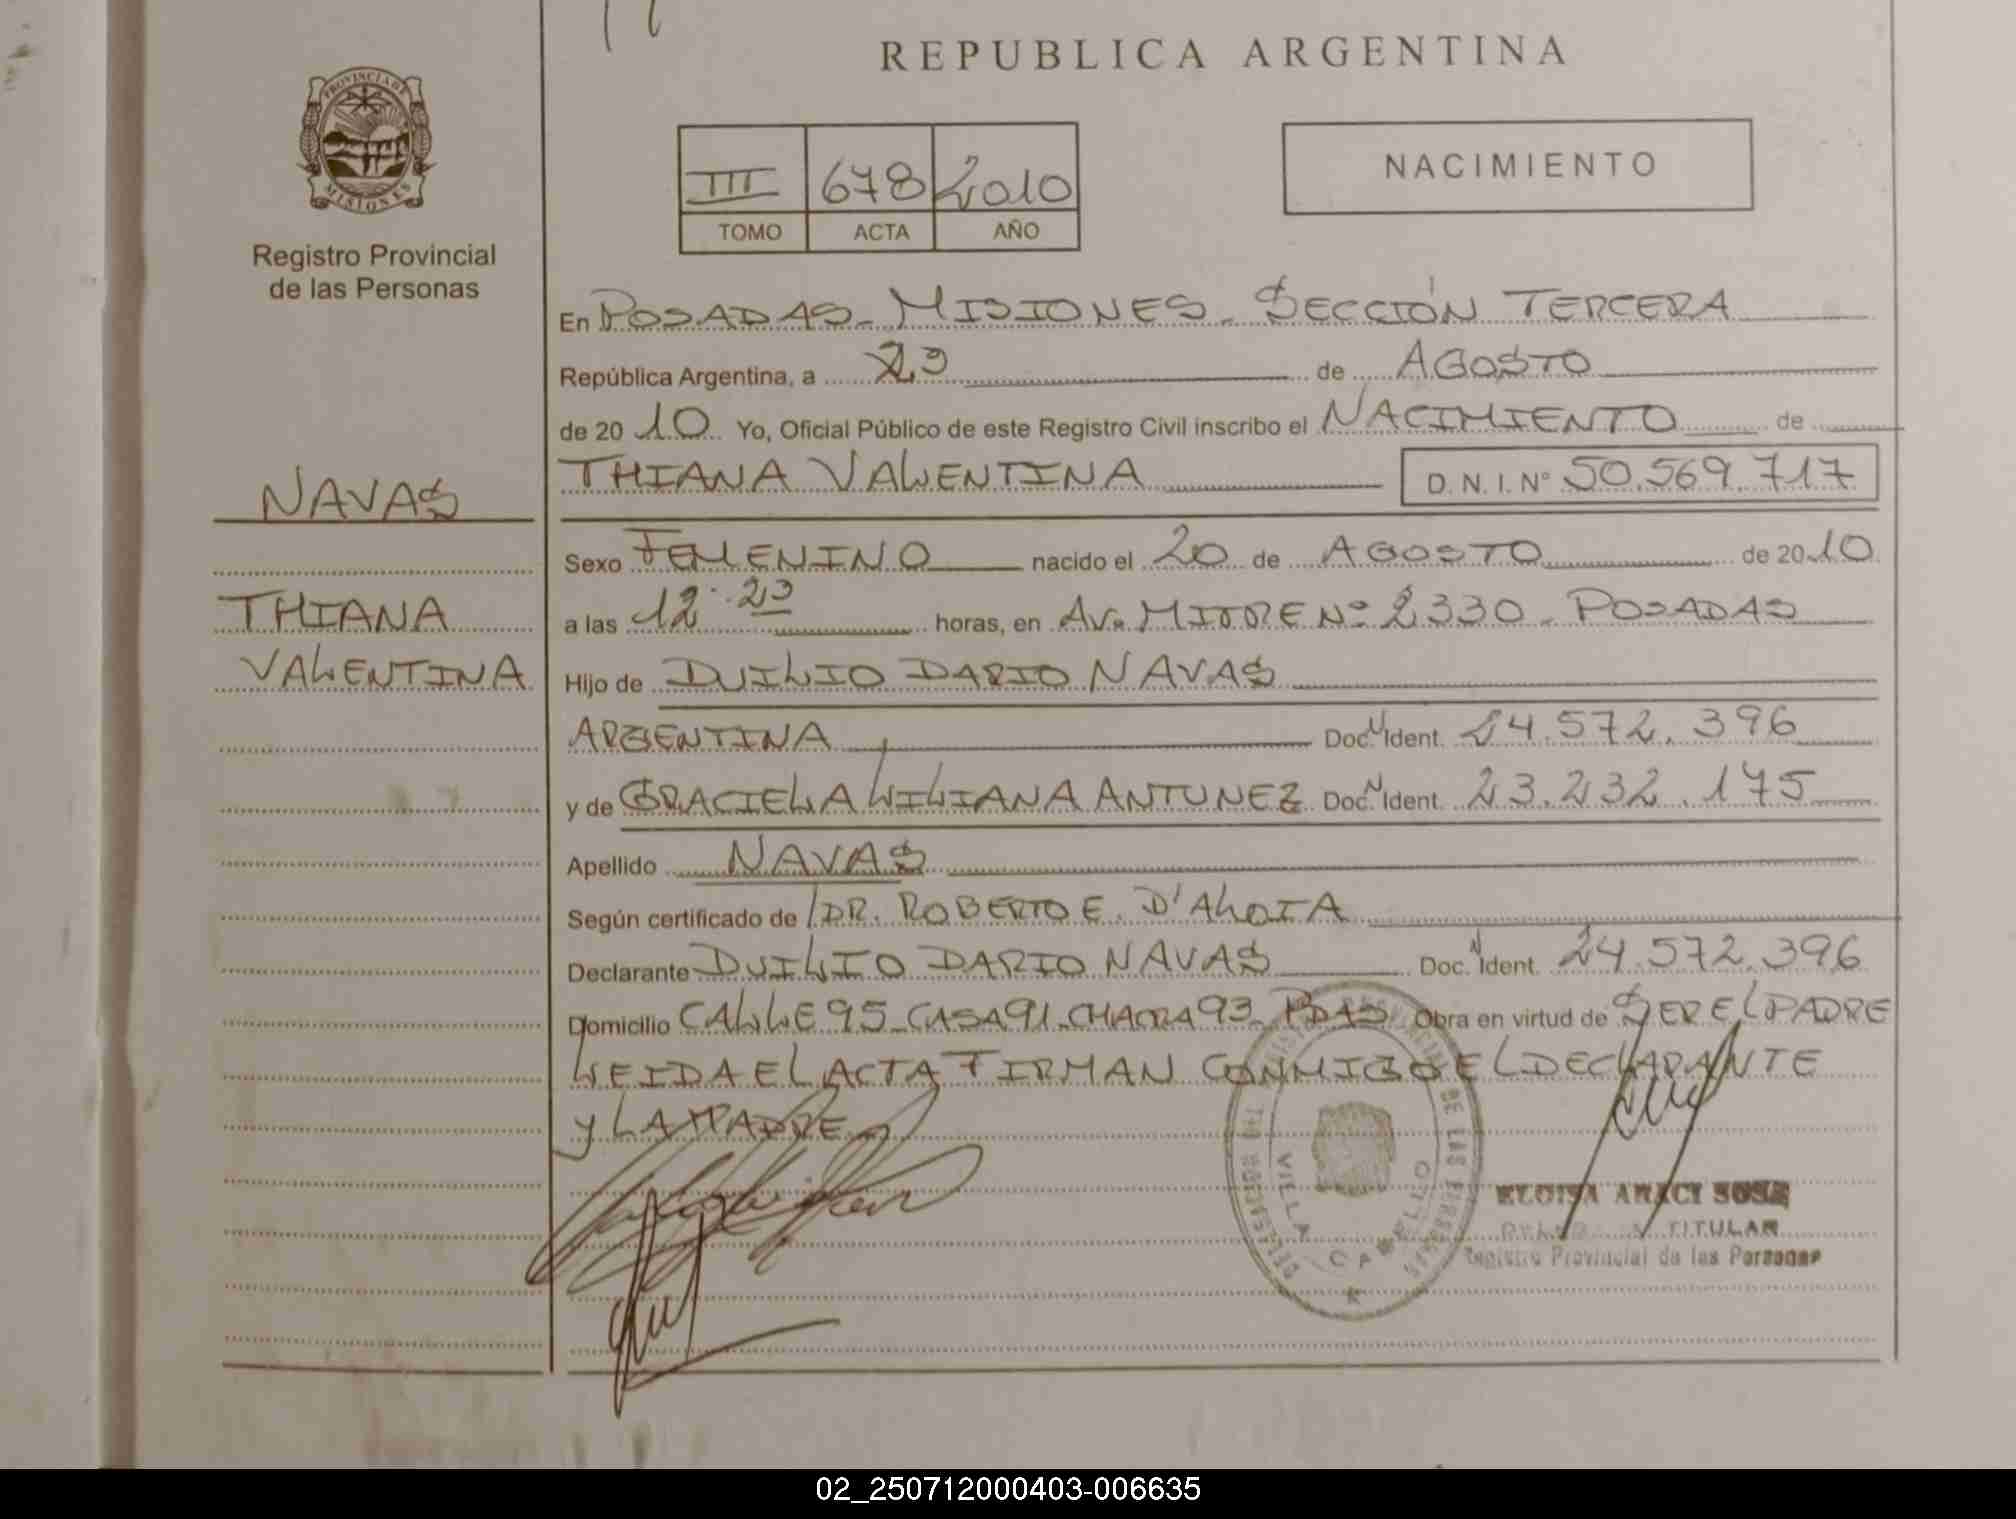 REPUBLICA ARGENTINA
PROVINCIA DE MISIONES
Registro Provincial
de las Personas
III 678 2010
TOMO ACTA AÑO
NACIMIENTO
En POSADAS - MISIONES - SECCIÓN TERCERA
República Argentina, a 23 de AGOSTO
de 20 10 Yo, Oficial Público de este Registro Civil inscribo el NACIMIENTO de
THIANA VALENTINA D.N.I. Nº 50.569.717
NAVAS
THIANA
VALENTINA
Sexo FEMENINO nacido el 20 de AGOSTO de 2010
a las 12:23 horas, en AV. MITRE Nº 2330 - POSADAS
Hijo de DUILIO DARIO NAVAS
ARGENTINA Doc. Ident. 24.572.396
y de GRACIELA LILIANA ANTUNEZ Doc. Ident. 23.232.175
Apellido NAVAS
Según certificado de DR. ROBERTO E. D'ALOIA
Declarante DUILIO DARIO NAVAS Doc. Ident. 24.572.396
Domicilio CALLE 95 - CASA 91 - CHACRA 93 - PDAS Obra en virtud de SER EL PADRE
LEIDA EL ACTA FIRMAN CONMIGO EL DECLARANTE
Y LA MADRE
VILLA CABELLO
ELOISA ARACI SOSA
TITULAR
Registro Provincial de las Personas
02_250712000403-006635